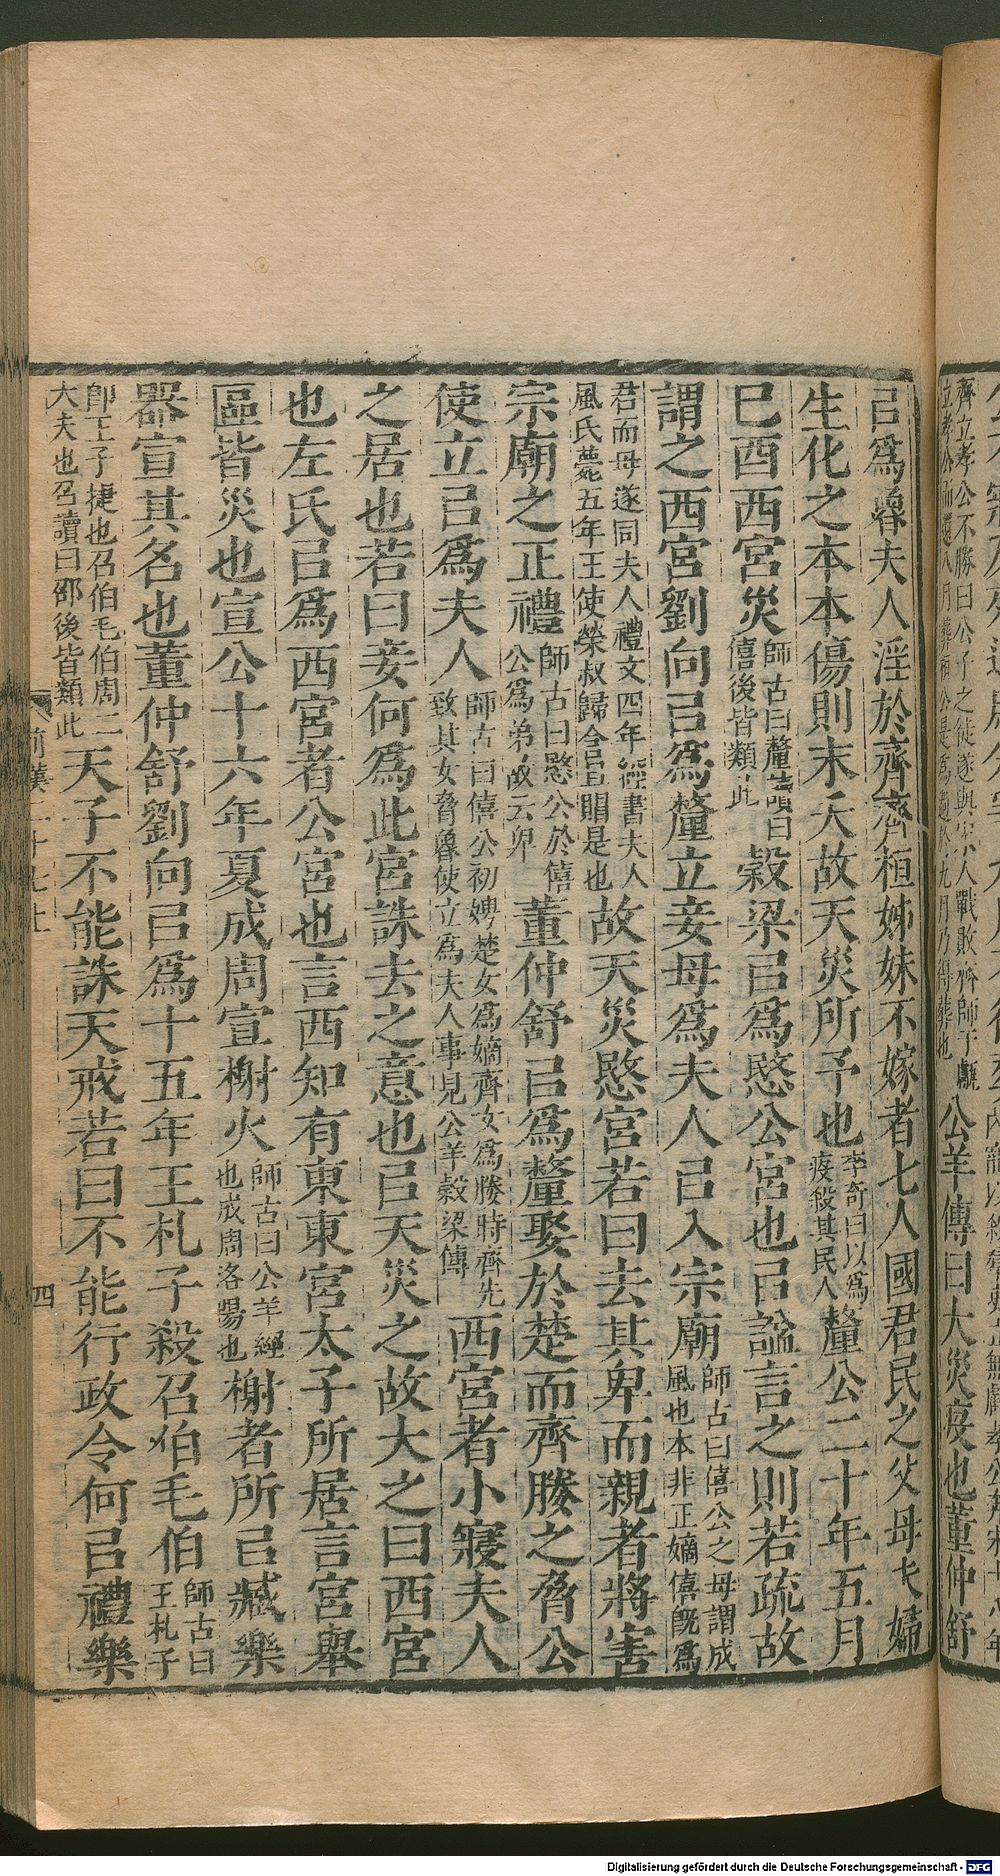 㠯爲魯夫人淫於齊齊桓姊妹不嫁者七人國君民之父母夫婦
生化之本本傷則末夭故天災所予也李奇曰以爲疫殺其民人釐公二十年五月
巳酉西宮災師古曰釐讀曰僖後皆類此穀梁㠯爲愍公宮也㠯諡言之則若疏故
謂之西宮劉向㠯爲釐立妾母爲夫人㠯入宗廟師古曰僖公之母謂成風也本非正嫡僖旣爲
君而母遂同夫人禮文四年經書夫人風氏薨五年王使榮叔歸含且賵是也故天災愍宮若曰去其卑而親者將害
宗廟之正禮師古曰愍公於僖公爲弟故云卑董仲舒㠯爲釐娶於楚而齊媵之脅公
使立㠯爲夫人師古曰僖公初娉楚女爲嫡齊女爲媵時齊先致其女脅魯使立爲夫人事見公羊穀梁傳西宮者小寢夫人
之居也若曰妾何爲此宮誅去之意也㠯天災之故大之曰西宮
也左氏㠯爲西宮者公宮也言西知有東東宮太子所居言宮舉
區皆災也宣公十六年夏成周宣榭火師古曰公羊經也成周洛陽也榭者所㠯臧樂
器宣其名也董仲舒劉向㠯爲十五年王札子殺召伯毛伯師古曰王札子
卽王子捷也召伯毛伯周二大夫也召讀曰邵後皆類此天子不能誅天戒若曰不能行政令何㠯禮樂
前漢二十七上
四
齊立孝公不勝曰公子之徒遂與宋人戰敗齊師于甗
公羊傳曰大災疫也董仲舒
Digitalisierung gefördert durch die Deutsche Forschungsgemeinschaft - DFG